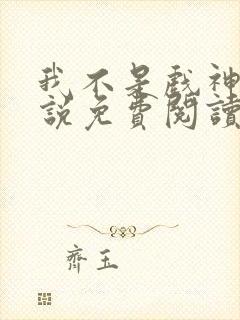 我不是戲神
說免費閱讀
齊玉